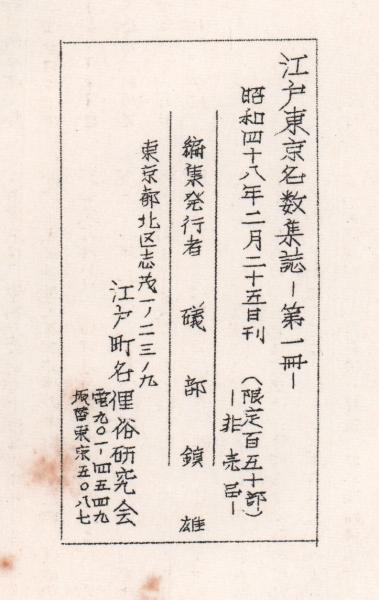 江戸東京名数集誌－第一冊－
昭和四十八年二月二十五日刊（限定百五十部）
－非売品－
編集発行者 磯部鎮雄
東京都北区志茂一ノ二三ノ九
江戸町名俚俗研究会
電九〇一－四五四九
振替東京五〇八七